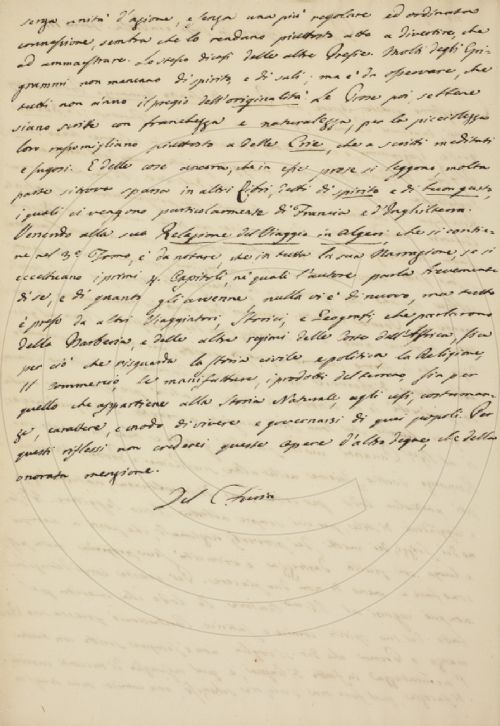 senza unità d'azione, e senza una più regolare ed ordinata
connessione, sembra che lo rendano piuttosto atto a divertire, che
ad ammaestrare. Lo stesso dicasi delle altre Poesie. Molti degli Epi-
grammi non mancano di spirito, e di sali; ma è da osservare, che
tutti non hanno il pregio dell'originalità. Le Prose poi, se bene
siano scritte con franchezza e naturalezza, per la picciolezza
loro rassomigliano piuttosto a delle Cose, che a scritti meditati
e sugosi. E delle cose ancora, che in esse prose si leggono, molta
parte si trova sparsa in altri Libri, detti di spirito e di buon gusto,
i quali ci vengono particolarmente di Francia e d'Inghilterra.
Venendo alla sua Relazione del Viaggio in Algeri che si contie-
ne nel 3.º Tomo, è da notare, che in tutta la sua Narrazione, se si
eccettuano i primi 4. Capitoli, ne' quali l'autore parla brevemente
di sé, e di quanto gli avvenne, nulla vi è di nuovo, ma tutto
è preso da altri Viaggiatori, Storici, e Geografi, che parlarono
della Barberia, e delle altre regioni delle Coste dell'Affrica, sia
per ciò che risguarda la storia civile e politica, la Religione,
il commercio le manifatture, i prodotti del terreno, sia per
quello che appartiene alla Storia Naturale, agli usi, costuman-
ze, carattere, e modo di vivere e governarsi di quei popoli. Per
questi riflessi non crederei queste opere d'altro degne, che della
onorata menzione.
Del